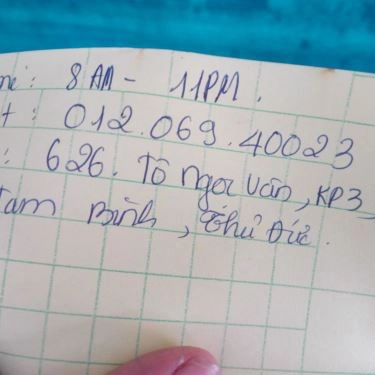 me: 8 AM - 11PM.
t: 012.069.40023
: 626. Tô Ngọc Vân, KP3,
Tam Bình, Thủ Đức.